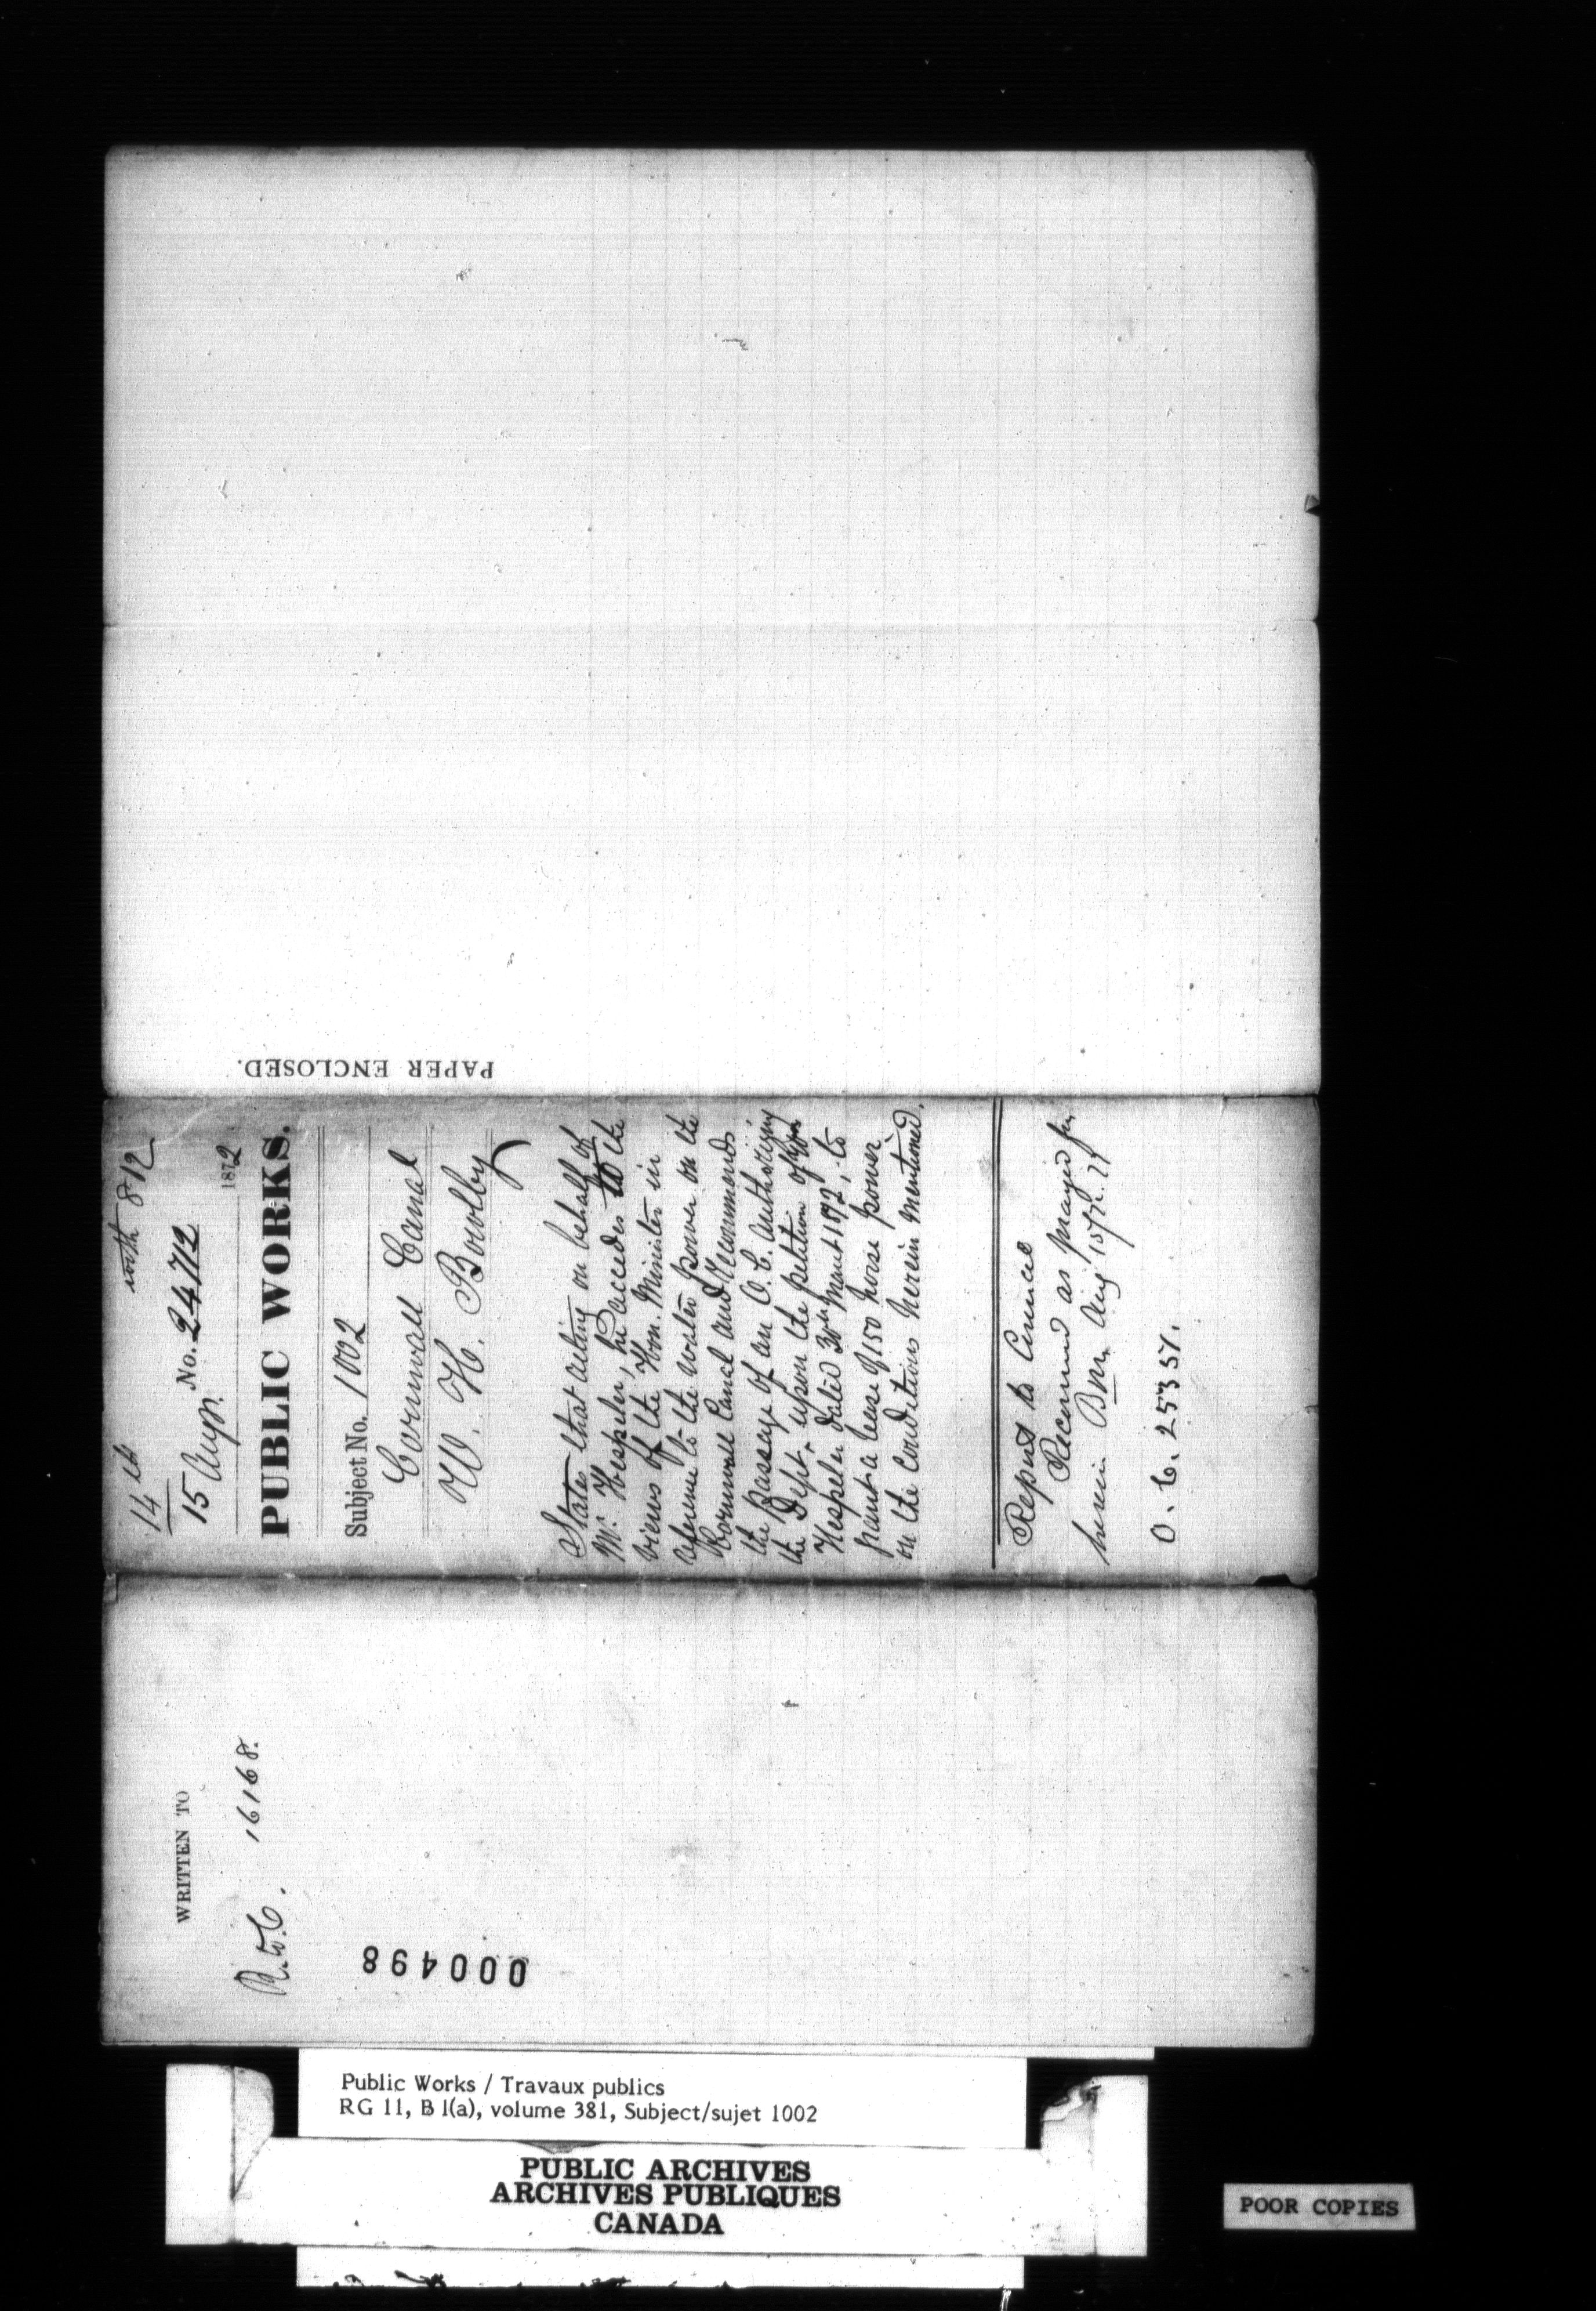 14th
with 812
No. 2472
15 Aug. 1872
PUBLIC WORKS.
Subject No. 1002
Cornwall Canal
W. H. Bowlby
States that acting on behalf of
Mr. Hespeler, he accedes to the
views of the Hon. Minister in
reference to the water power on the
Cornwall Canal and recommends
the Passage of an O.C. authorizing
the Dept. upon the petition of
Hespeler dated 30th 1872, to
grant a lease of 150 horse power
on the conditions herein mentioned.
Report to Council
Recommend as prayed for
herein Aug 1872
O.C. 25351.
PAPER ENCLOSED.
WRITTEN TO
R.to.C. 16168.
000498
Public Works / Travaux publics
RG 11, B 1(a), volume 381, Subject/sujet 1002
PUBLIC ARCHIVES
ARCHIVES PUBLIQUES
CANADA
POOR COPIES